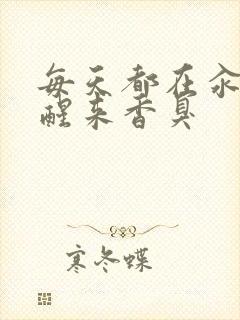 每天都在汆
醒来香臭
寒冬蝶